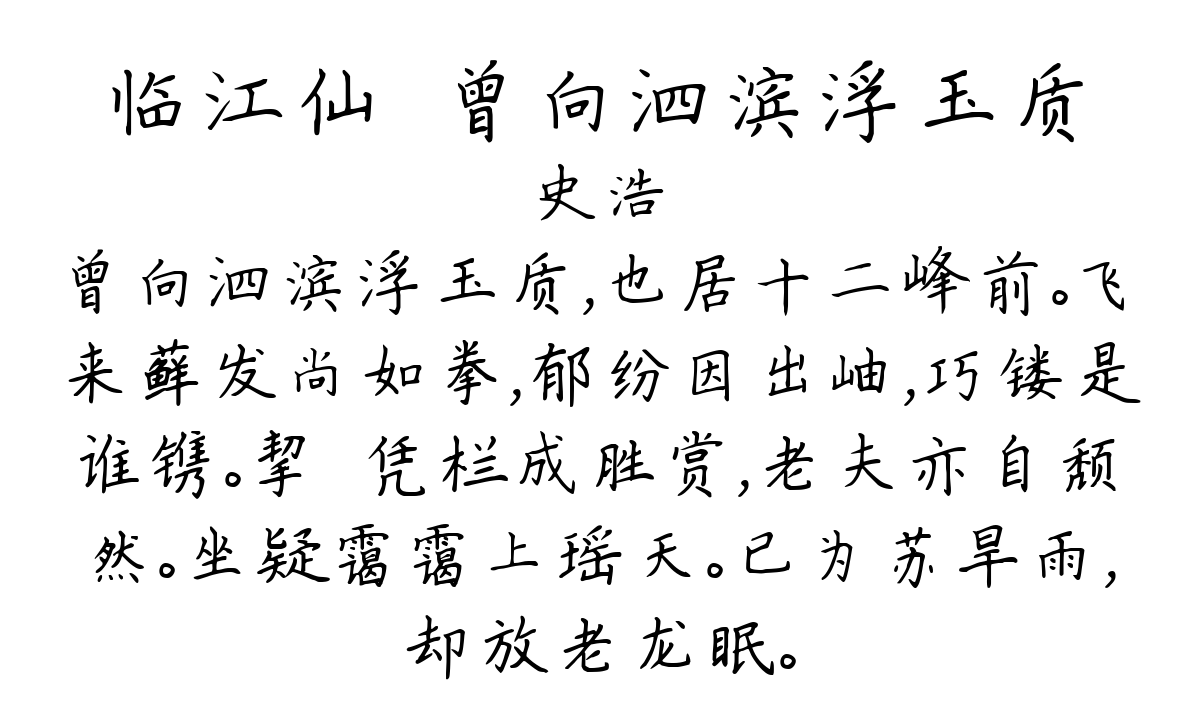 临江仙 曾向泗滨浮玉质
史浩
曾向泗滨浮玉质,也居十二峰前。飞
来藓发尚如拳,郁纷因出岫,巧镂是
谁镌。挈 凭栏成胜赏,老夫亦自颓
然。坐疑霭霭上瑶天。已为苏旱雨,
却放老龙眠。